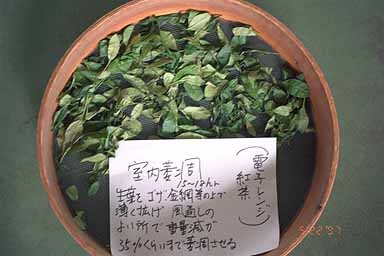 (電子レンジ
紅茶)
室内萎凋
15〜18hr
生葉をゴザ、金網等の上で
薄く拡げ 風通しの
よい所で 重量減が
35%くらいまで萎凋させる
5 22 '97